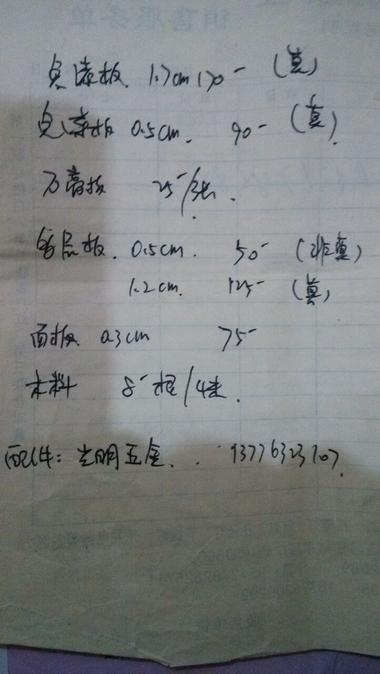 销售服务单
免漆板 1.7cm 170- (真)
免漆板 0.5cm. 90- (真)
石膏板 25-/张.
多层板. 0.5cm. 50- (非真)
1.2cm. 125- (真)
面板. 0.3cm 75-
木料 8-根/4米.
配件: 光明五金.